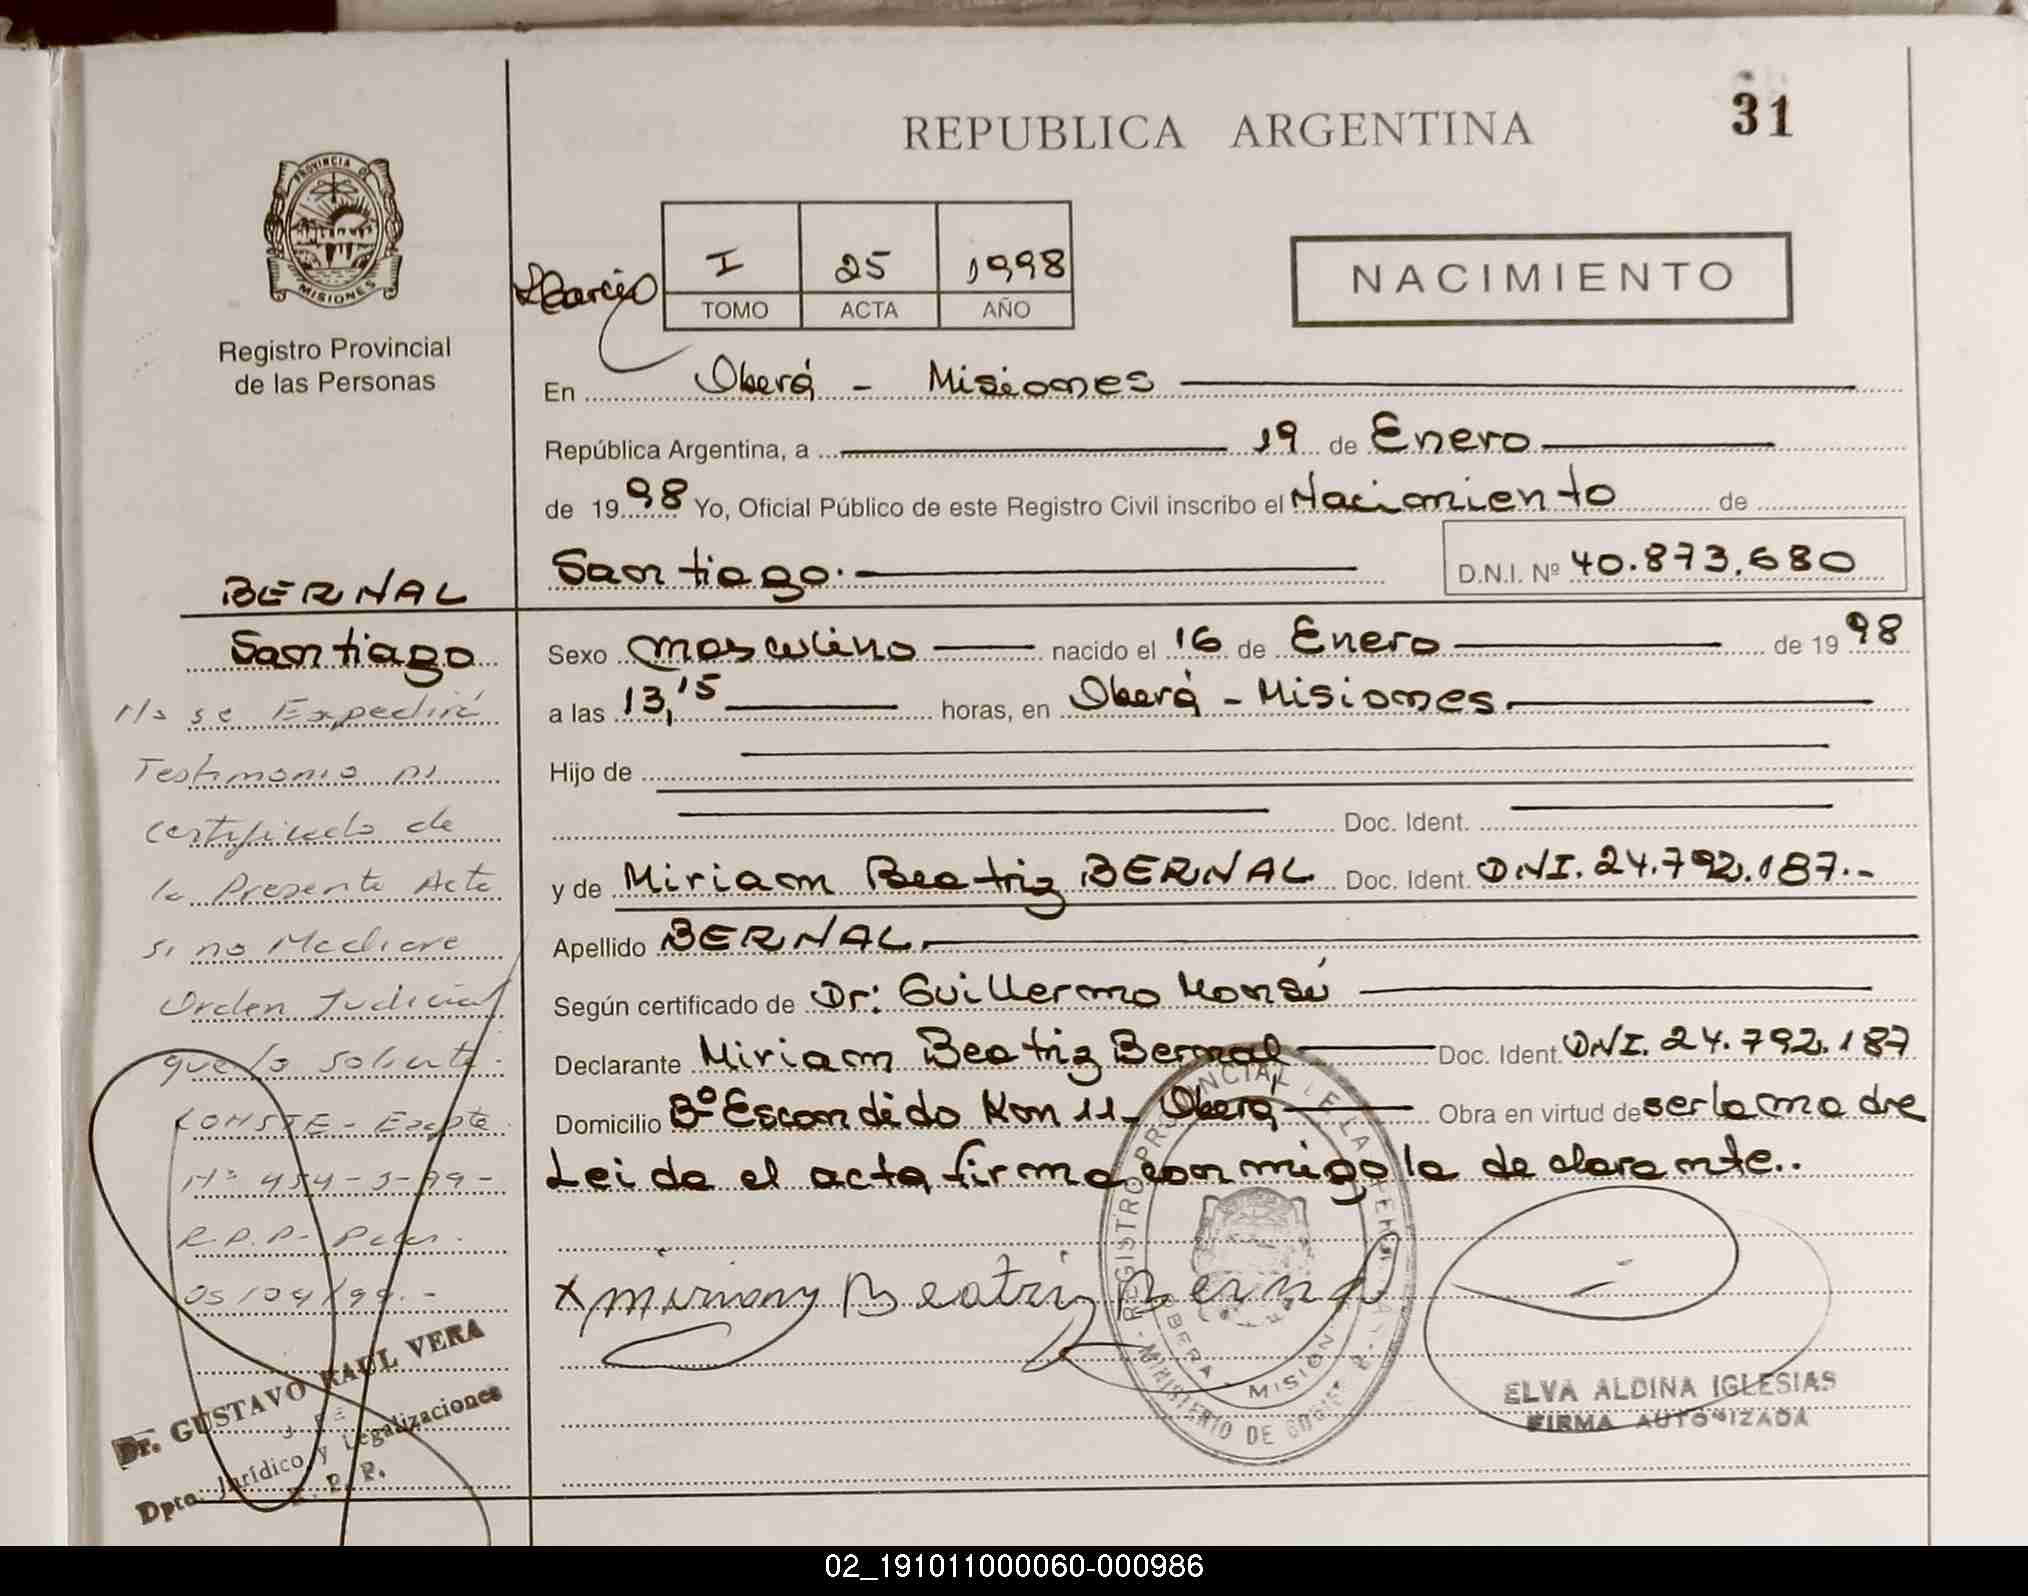 REPUBLICA ARGENTINA
31
PROVINCIA DE
MISIONES
Registro Provincial
de las Personas
I 25 1998
TOMO ACTA AÑO
NACIMIENTO
En Oberá - Misiones
República Argentina, a 19 de Enero
de 1998 Yo, Oficial Público de este Registro Civil inscribo el Nacimiento de
Santiago.
D.N.I. Nº 40.873.680
Sexo masculino nacido el 16 de Enero de 1998
a las 13,15 horas, en Oberá - Misiones
Hijo de
Doc. Ident.
y de Miriam Beatriz BERNAL Doc. Ident. DNI. 24.792.187.-
Apellido BERNAL.
Según certificado de Dr: Guillermo Monsú
Declarante Miriam Beatriz Bernal Doc. Ident. DNI. 24.792.187
Domicilio Bº Escondido Km 11- Oberá Obra en virtud de ser la madre
Leida el acta, firma conmigo la declarante..
x miriam Beatriz Bernal
REGISTRO PROVINCIAL DE LAS PERSONAS
OBERA - MISIONES
MINISTERIO DE GOBIERNO
ELVA ALDINA IGLESIAS
FIRMA AUTORIZADA
BERNAL
Santiago
No se Expedirá
Testimonio ni
certificado de
la Presente Acta
si no Mediare
Orden Judicial
que lo solicite.
CONSTE - Expte
Nº 454-S-99-
R.P.P-
05/04/99.-
Dr. GUSTAVO RAUL VERA
JEFE
Dpto. Jurídico y Legalizaciones
R. P. P.
02_191011000060-000986